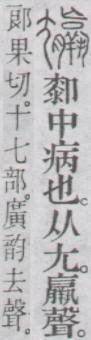 厀中病也。从尢。羸聲。
郎果切。十七部。廣韵去聲。